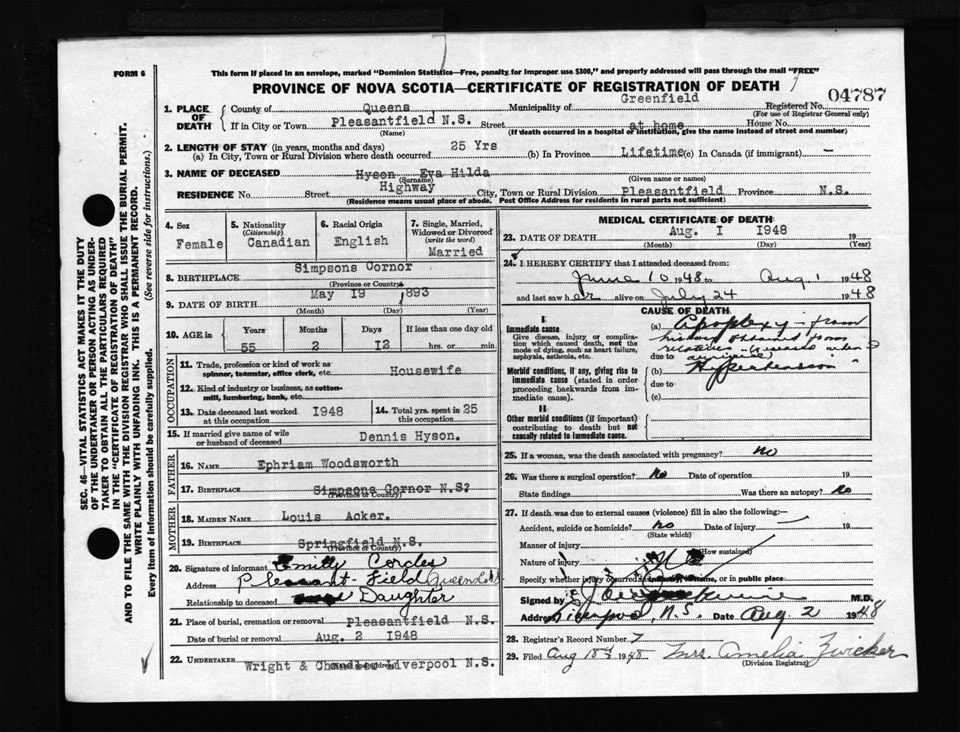 FORM 6
This form if placed in an envelope, marked "Dominion Statistics—Free, penalty for improper use $300," and properly addressed will pass through the mail "FREE"
PROVINCE OF NOVA SCOTIA—CERTIFICATE OF REGISTRATION OF DEATH
04787
1. PLACE OF DEATH
County of Queens Municipality of Greenfield Registered No.
(For use of Registrar General only)
If in City or Town Pleasantfield N.S. Street at home House No.
(Name) (If death occurred in a hospital or institution, give the name instead of street and number)
2. LENGTH OF STAY (in years, months and days)
(a) In City, Town or Rural Division where death occurred 25 Yrs (b) In Province Lifetime (c) In Canada (if immigrant) —
3. NAME OF DECEASED Hyson Eva Hilda
(Surname) (Given name or names)
RESIDENCE No. Street Highway City, Town or Rural Division Pleasantfield Province N.S.
(Residence means usual place of abode. Post Office Address for residents in rural parts not sufficient)
4. Sex
Female
5. Nationality
(Citizenship)
Canadian
6. Racial Origin
English
7. Single, Married, Widowed or Divorced
(write the word)
Married
8. BIRTHPLACE Simpsons Cornor
(Province or Country)
9. DATE OF BIRTH May 19 1893
(Month) (Day) (Year)
10. AGE in
Years Months Days If less than one day old
55 2 12 hrs. or min.
OCCUPATION
11. Trade, profession or kind of work as spinner, teamster, office clerk, etc. Housewife
12. Kind of industry or business, as cotton-mill, lumbering, bank, etc.
13. Date deceased last worked at this occupation 1948
14. Total yrs. spent in this occupation 25
15. If married give name of wife or husband of deceased Dennis Hyson.
FATHER
16. NAME Ephriam Woodsworth
17. BIRTHPLACE Simpsons Cornor N.S?
(Province or Country)
MOTHER
18. MAIDEN NAME Louis Acker.
19. BIRTHPLACE Springfield N.S.
(Province or Country)
20. Signature of informant Emily Cordes
Address Pleasant-Field Queens Co NS
Relationship to deceased Daughter
21. Place of burial, cremation or removal Pleasantfield N.S.
Date of burial or removal Aug. 2 1948
22. UNDERTAKER Wright & Chandler Liverpool N.S.
MEDICAL CERTIFICATE OF DEATH
23. DATE OF DEATH Aug. I 1948 19
(Month) (Day) (Year)
24. I HEREBY CERTIFY that I attended deceased from:
June 10 1948 to Aug 1 1948
and last saw her alive on July 24 1948
CAUSE OF DEATH
I
Immediate cause
Give disease, injury or complication which caused death, not the mode of dying, such as heart failure, asphyxia, asthenia, etc.
(a) Apoplexy - from
history obtained from
relatives
due to
Morbid conditions, if any, giving rise to immediate cause (stated in order proceeding backwards from immediate cause).
(b) Hypertension
due to
(c)
II
Other morbid conditions (if important) contributing to death but not causally related to immediate cause.
25. If a woman, was the death associated with pregnancy? no
26. Was there a surgical operation? No Date of operation 19
State findings Was there an autopsy? No
27. If death was due to external causes (violence) fill in also the following:—
Accident, suicide or homicide? no Date of injury — 19
(State which)
Manner of injury
(How sustained)
Nature of injury
Specify whether injury occurred in industry, in home, or in public place
Signed by M.D.
Address Liverpool, N.S. Date Aug 2 1948
28. Registrar's Record Number 7
29. Filed Aug 18th 1948 Mrs. Amelia Zwicker
(Division Registrar)
SEC. 46—VITAL STATISTICS ACT MAKES IT THE DUTY
OF THE UNDERTAKER OR PERSON ACTING AS UNDER-
TAKER TO OBTAIN ALL THE PARTICULARS REQUIRED
IN THE "CERTIFICATE OF REGISTRATION OF DEATH"
AND TO FILE THE SAME WITH THE DIVISION REGISTRAR WHO SHALL ISSUE THE BURIAL PERMIT.
WRITE PLAINLY WITH UNFADING INK. THIS IS A PERMANENT RECORD.
Every item of information should be carefully supplied. (See reverse side for instructions.)